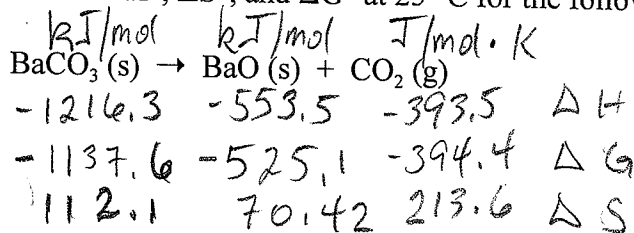 , and ΔG° at 25 °C for the follow
kJ/mol kJ/mol J/mol·K
BaCO₃ (s) → BaO (s) + CO₂ (g)
-1216.3 -553.5 -393.5 ΔH
-1137.6 -525.1 -394.4 ΔG
112.1 70.42 213.6 ΔS